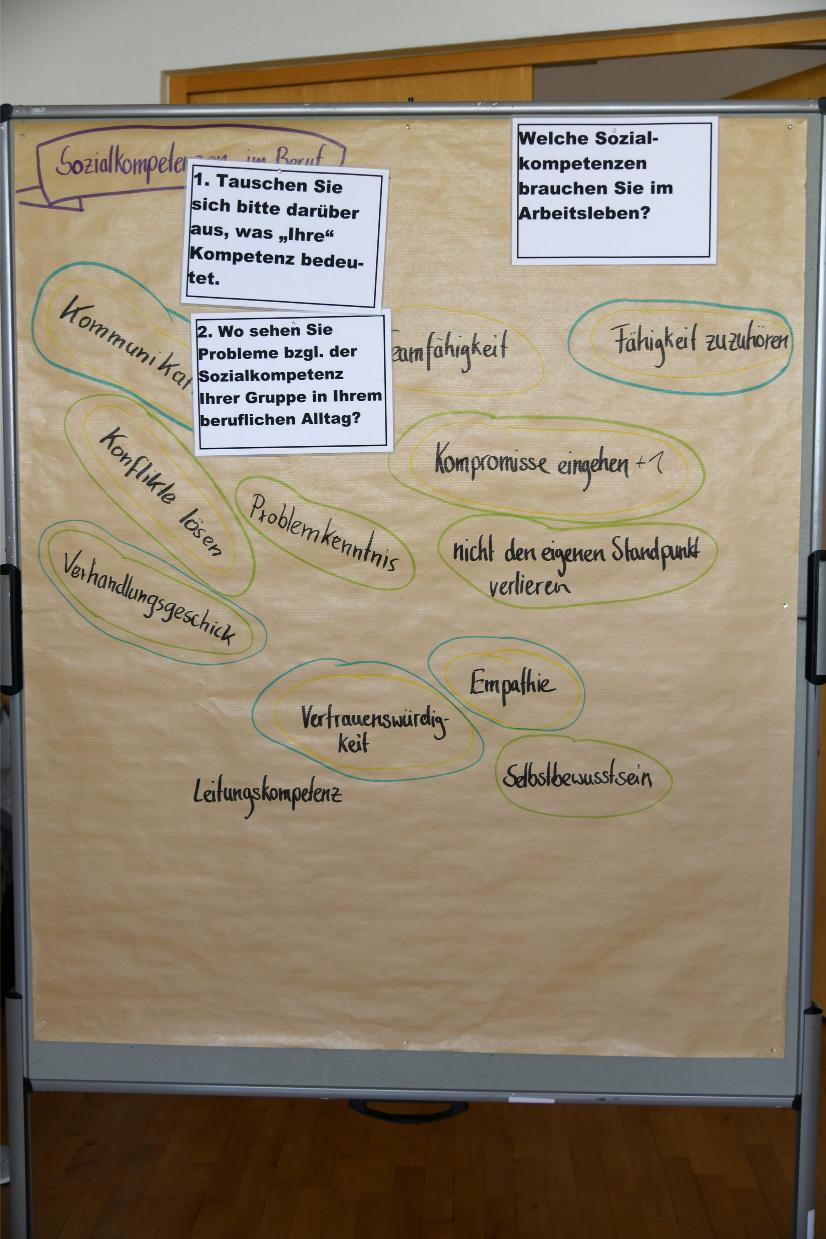 Sozialkompetenzen im Beruf
Welche Sozial-
kompetenzen
brauchen Sie im
Arbeitsleben?
1. Tauschen Sie
sich bitte darüber
aus, was „Ihre“
Kompetenz bedeu-
tet.
2. Wo sehen Sie
Probleme bzgl. der
Sozialkompetenz
Ihrer Gruppe in Ihrem
beruflichen Alltag?
Kommunikat
eamfähigkeit
Fähigkeit zuzuhören
Konflikte lösen
Kompromisse eingehen +1
Problemkenntnis
nicht den eigenen Standpunkt
verlieren
Verhandlungsgeschick
Empathie
Vertrauenswürdig-
keit
Selbstbewusstsein
Leitungskompetenz